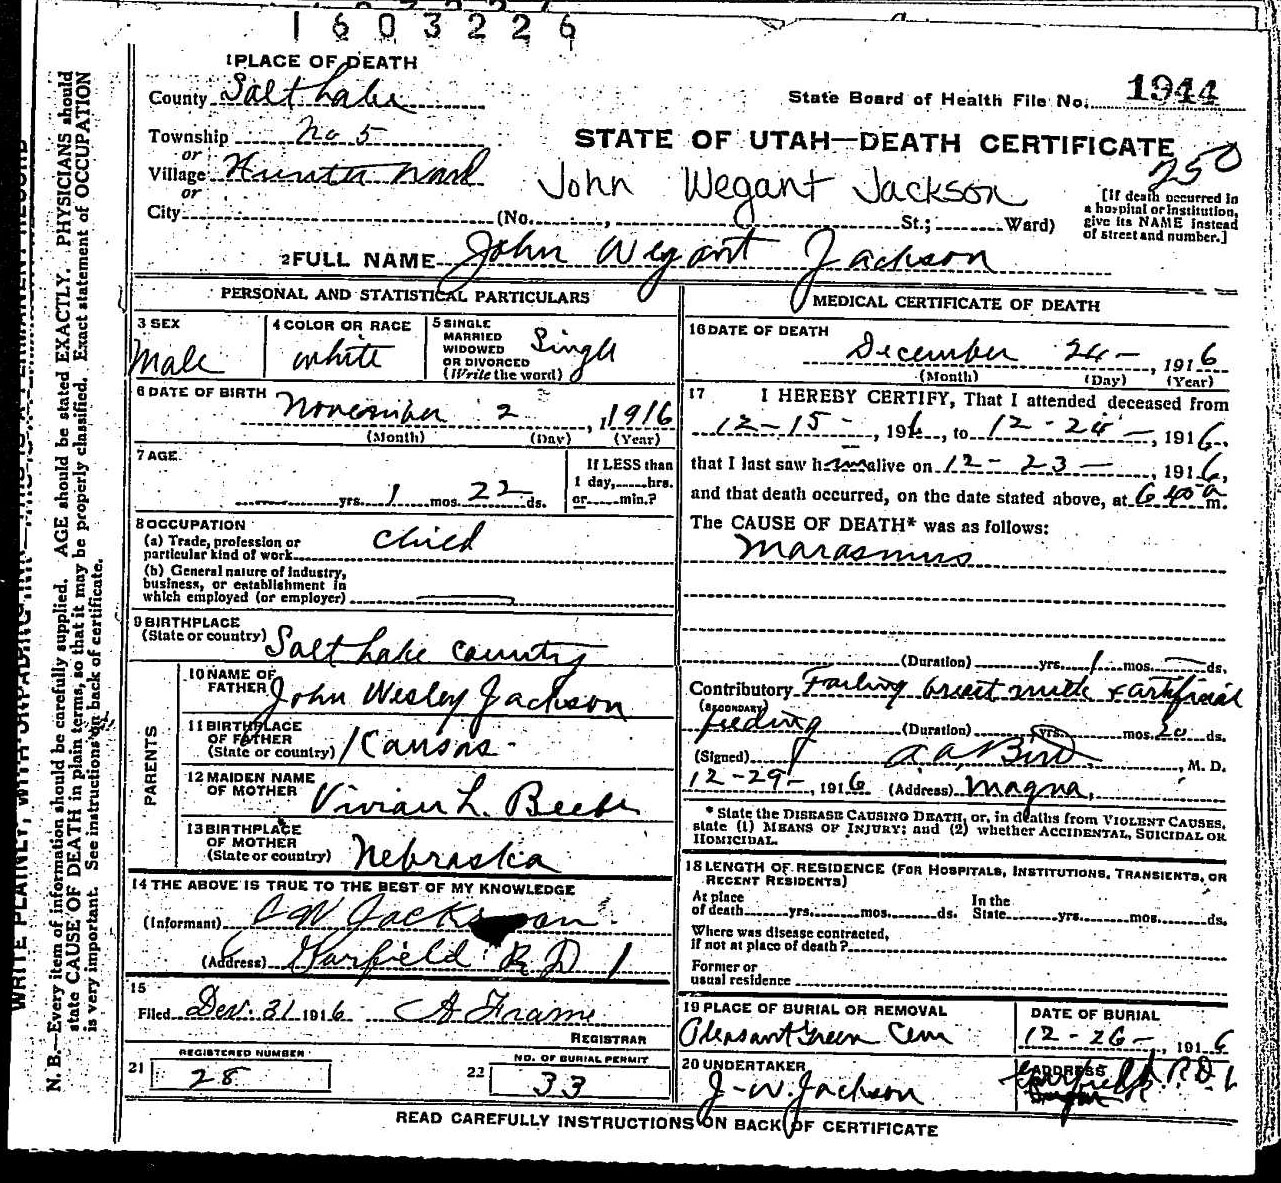 1603226
1 PLACE OF DEATH
County Salt Lake
State Board of Health File No. 1944
Township No 5
STATE OF UTAH—DEATH CERTIFICATE
or
250
Village Hunter Ward
John Wegant Jackson
or
City (No. , St.; Ward)
[If death occurred in
a hospital or institution,
give its NAME instead
of street and number.]
2 FULL NAME John Wegant Jackson
PERSONAL AND STATISTICAL PARTICULARS
3 SEX
Male
4 COLOR OR RACE
white
5 SINGLE
MARRIED
WIDOWED
OR DIVORCED
(Write the word)
Single
6 DATE OF BIRTH
November 2, 1916
(Month) (Day) (Year)
7 AGE
yrs. 1 mos. 22 ds.
If LESS than
1 day, hrs.
or min.?
8 OCCUPATION
(a) Trade, profession or
particular kind of work child
(b) General nature of industry,
business, or establishment in
which employed (or employer)
9 BIRTHPLACE
(State or country) Salt Lake County
PARENTS
10 NAME OF
FATHER John Wesley Jackson
11 BIRTHPLACE
OF FATHER
(State or country) Kansas
12 MAIDEN NAME
OF MOTHER Vivian L. Beebe
13 BIRTHPLACE
OF MOTHER
(State or country) Nebraska
14 THE ABOVE IS TRUE TO THE BEST OF MY KNOWLEDGE
(Informant) J W Jackson
(Address) Garfield R D 1
15
Filed Dec. 31 1916 A Frame
REGISTRAR
21 REGISTERED NUMBER
28
22 NO. OF BURIAL PERMIT
33
MEDICAL CERTIFICATE OF DEATH
16 DATE OF DEATH
December 24, 1916
(Month) (Day) (Year)
17 I HEREBY CERTIFY, That I attended deceased from
12-15-, 1916, to 12-24-, 1916.
that I last saw him alive on 12-23-, 1916,
and that death occurred, on the date stated above, at 6 40 a m.
The CAUSE OF DEATH* was as follows:
Marasmus
(Duration) yrs. 1 mos. ds.
Contributory Failing breast milk & artificial
(SECONDARY)
feeding (Duration) yrs. mos. 20 ds.
(Signed) A. A. Bird, M. D.
12-29-, 1916 (Address) Magna,
* State the DISEASE CAUSING DEATH, or, in deaths from VIOLENT CAUSES,
state (1) MEANS OF INJURY; and (2) whether ACCIDENTAL, SUICIDAL OR
HOMICIDAL.
18 LENGTH OF RESIDENCE (FOR HOSPITALS, INSTITUTIONS, TRANSIENTS, OR
RECENT RESIDENTS)
At place In the
of death yrs. mos. ds. State yrs. mos. ds.
Where was disease contracted,
if not at place of death?
Former or
usual residence
19 PLACE OF BURIAL OR REMOVAL
Pleasant Green Cem
DATE OF BURIAL
12-26-, 1916
20 UNDERTAKER
J. W. Jackson
ADDRESS
Garfield R.D. 1
READ CAREFULLY INSTRUCTIONS ON BACK OF CERTIFICATE
WRITE PLAINLY, WITH UNFADING INK—THIS IS A PERMANENT RECORD
N. B.—Every item of information should be carefully supplied. AGE should be stated EXACTLY. PHYSICIANS should
state CAUSE OF DEATH in plain terms, so that it may be properly classified. Exact statement of OCCUPATION
is very important. See instructions on back of certificate.